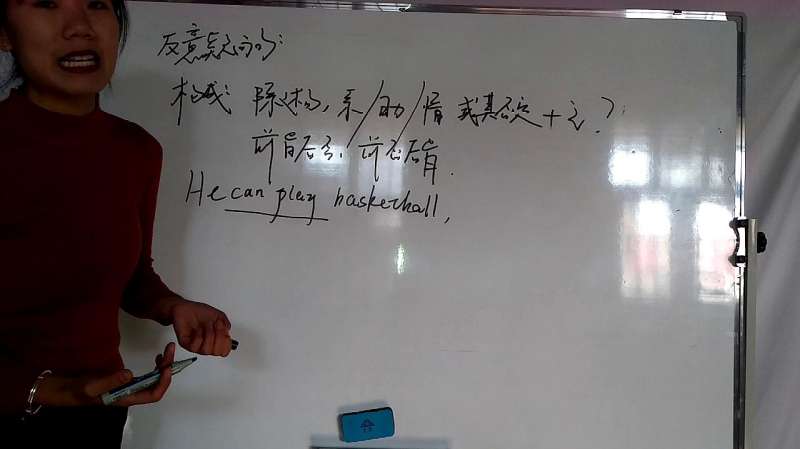 反意疑问句:
构成: 陈述句, 系/助/情 或其否定 + 主?
前肯后否, 前否后肯.
He can play basketball,